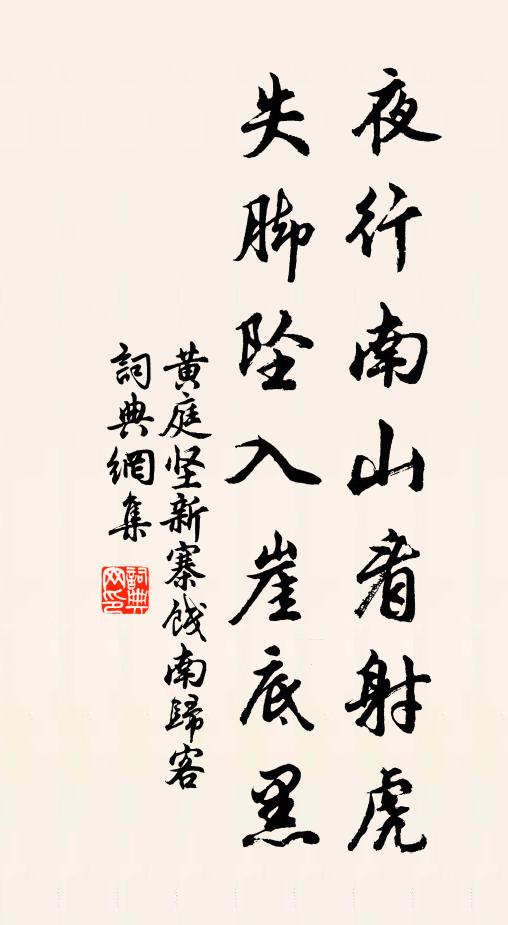 夜行南山看射虎
失脚坠入崖底黑
黄庭坚新寨饯南歸客
詞典網集
詞典
网印